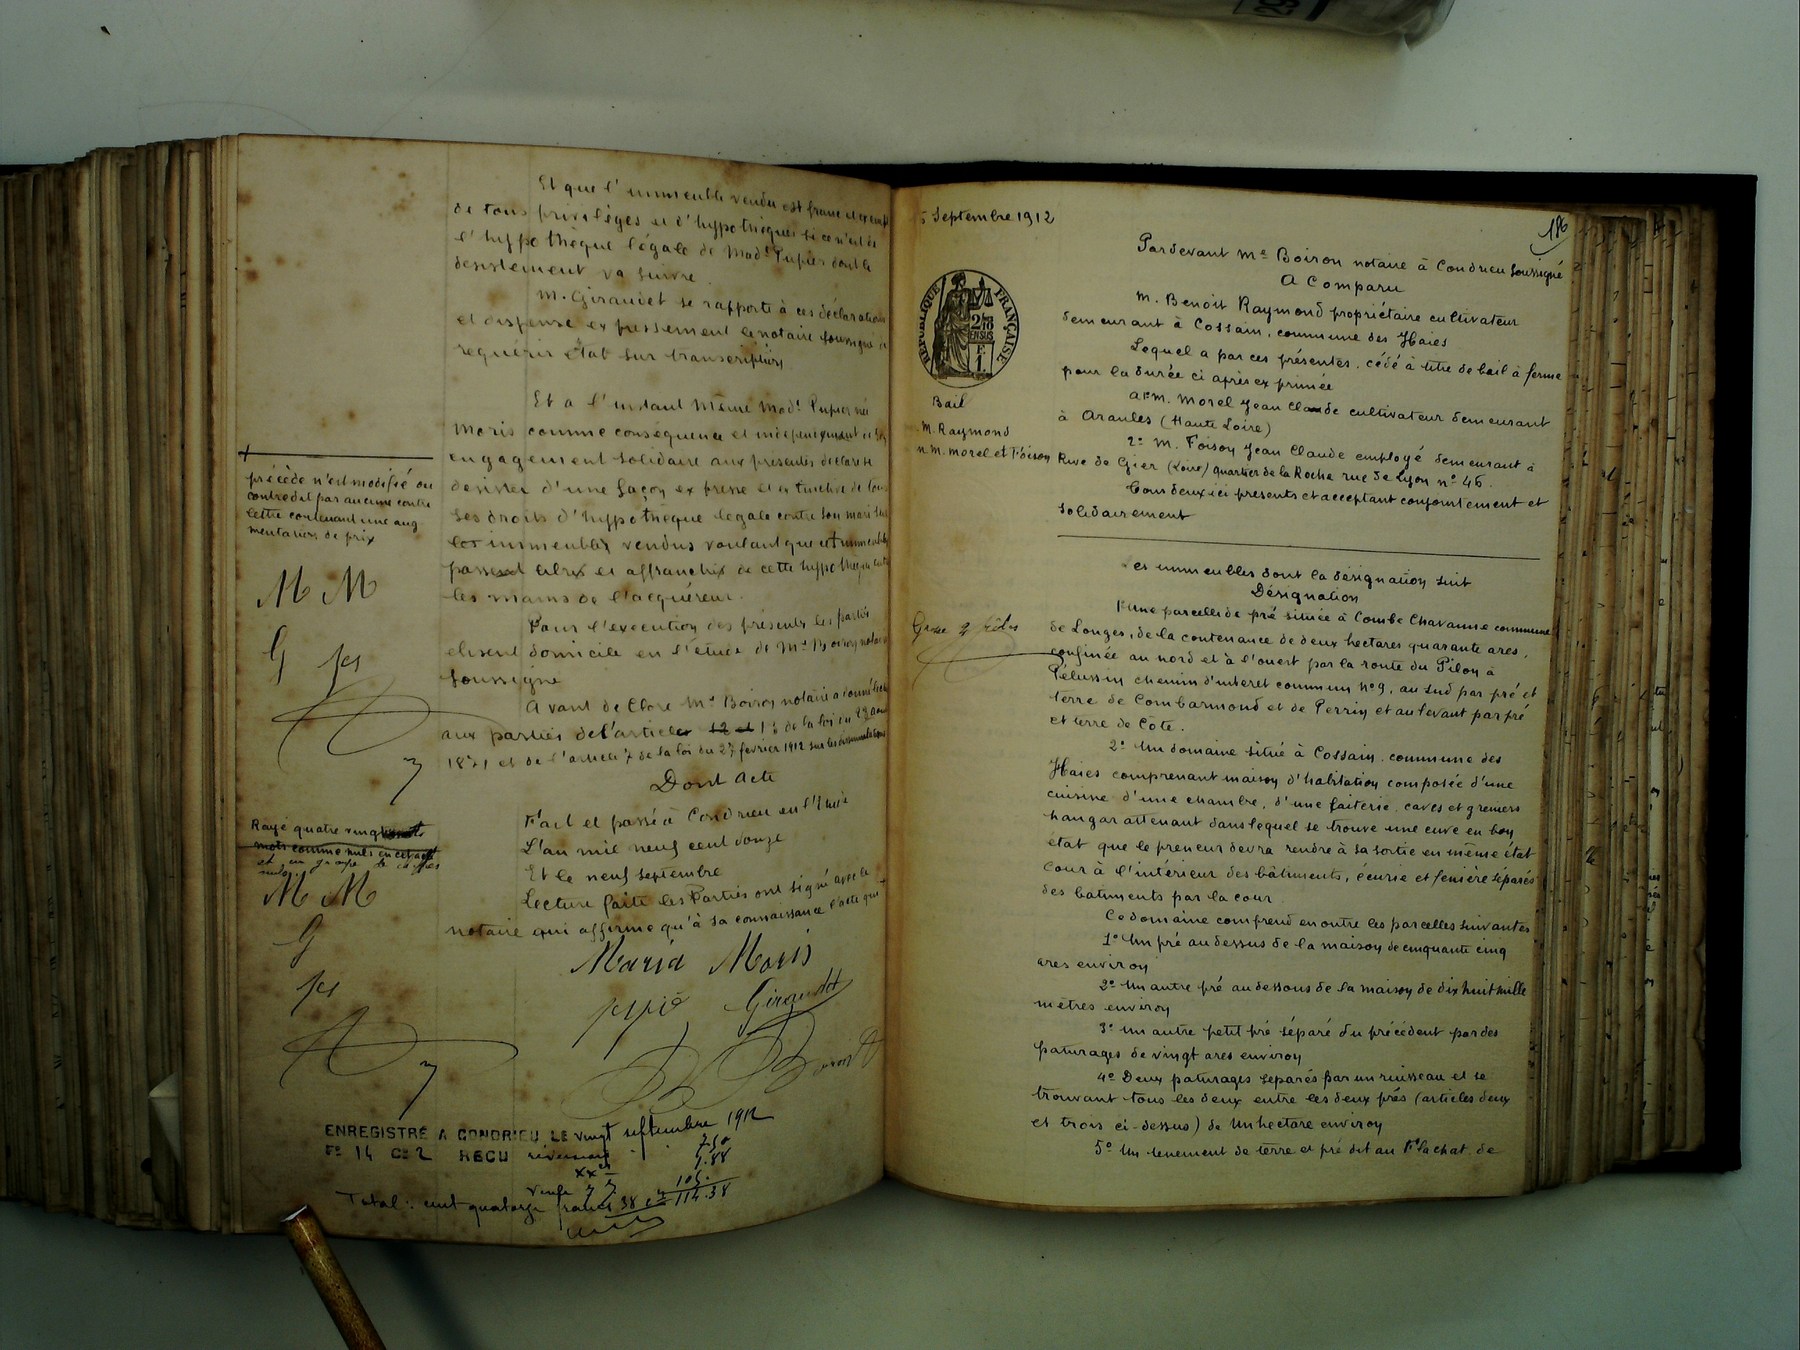 Et que l'immeuble vendu est franc et exempt
de tous privilèges et d'hypothèques si ce n'est de
l'hypothèque légale de Mad^e Pupier dont le
desistement va suivre.
M. Giraudet se rapporte à ces déclarations
et dispense expressement le notaire soussigné de
requérir état sur transcription
Et a l'instant même Mad^e Pupier née
Moris comme conséquence et indépendamment de son
engagement solidaire aux présentes declare se
desister d'une façon expresse et en tous
ses droits d'hypothèque légale contre son mari sur
les immeubles vendus voulant que cet immeuble
passe libre et affranchi de cette hypothèque
les mains de l'acquéreur.
Pour l'execution des présentes les parties
elisent domicile en l'étude de M^e Boiron notaire
soussigné
Avant de Clore M^e Boiron notaire a donné lecture
aux parties de l'article 12 et 13 de la loi du 23 aout
1871 et de l'article 7 de la loi du 27 février 1912 sur les dissimulations
Dont Acte
Fait et passé à Condrieu en l'Etude
L'an mil neuf cent douze
Et le neuf septembre
Lecture faite les Parties ont signé avec le
notaire qui affirme qu'à sa connaissance l'acte qui +
Maria Moris
Giraudet
Boiron
+
précède n'est modifié ou
contredit par aucune contre
lettre contenant une aug
mentation de prix
M M
G
Rayé quatre vingt
mots comme nuls en cet acte
M M
G
ENREGISTRÉ A CONDRIEU, LE vingt septembre 1912
F° 14 C° 2 RECU
7.50
1.88
105.
Total: cent quatorze francs 38 c^es 114.38
5 Septembre 1912
196
RÉPUBLIQUE FRANÇAISE
2/10 EN SUS
F. 1.
Bail
M. Raymond
à M.M. Morel et Foison
Pardevant M^e Boiron notaire à Condrieu soussigné
A Comparu
M. Benoit Raymond propriétaire cultivateur
demeurant à Cossain, commune des Haies
Lequel a par ces présentes, cédé à titre de bail à ferme
pour la durée ci après exprimée
A 1° M. Morel Jean Claude cultivateur demeurant
à Araules (Haute Loire)
2° M. Foison Jean Claude employé demeurant à
Rive de Gier (Loire) quartier de la Roche rue de Lyon n° 46.
Tous deux ici présents et acceptant conjointement et
solidairement
Les immeubles dont la désignation suit
Désignation
1° Une parcelle de pré située à Combe Chavanne commune
de Longes, de la contenance de deux hectares quarante ares,
confinée au nord et à l'ouest par la route du Pilon à
Pélussin chemin d'interet commun N° 9, au sud par pré et
terre de Combarmond et de Perrin et au levant par pré
et terre de Côte.
2° Un domaine situé à Cossain, commune des
Haies comprenant maison d'habitation composée d'une
cuisine d'une chambre, d'une laiterie, caves et greniers
hangar attenant dans lequel se trouve une cuve en bon
état que le preneur devra rendre à sa sortie en même état
Cour à l'intérieur des bâtiments, écurie et fenière séparés
des bâtiments par la cour.
Ce domaine comprend en outre les parcelles suivantes
1° Un pré au dessus de la maison de cinquante cinq
ares environ
2° Un autre pré au dessous de la maison de dix huit mille
mètres environ
3° Un autre petit pré séparé du précédent par des
paturages de vingt ares environ
4° Deux paturages séparés par un ruisseau et se
trouvant tous les deux entre les deux prés (articles deux
et trois ci-dessus) de Un hectare environ
5° Un tenement de terre et pré dit au Flachat de